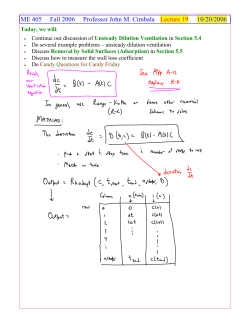 ME 405 Fall 2006 Professor John M. Cimbala Lecture 19 10/20/2006
Today, we will:
• Continue our discussion of Unsteady Dilution Ventilation in Section 5.4
• Do several example problems – unsteady dilution ventilation
• Discuss Removal by Solid Surfaces (Adsorption) in Section 5.5
• Discuss how to measure the wall loss coefficient
• Do Candy Questions for Candy Friday
Recall, our Ventilation Equation:
dc/dt = B(t) - A(t) C
See App A-12
explains R-K
In general, use Runge-Kutta or some other numerical
(R-K) schemes to solve
MATHCAD:
The derivative dc/dt = B(t) - A(t) C = D(t,c)
derivative dc/dt
Output = Rkadapt(C, tstart, tend, nsteps, D)
Column 0 (time) 1 (c)
row
Output =
0 0 c(0)
1
2
3
4
nsteps tend c(tend)